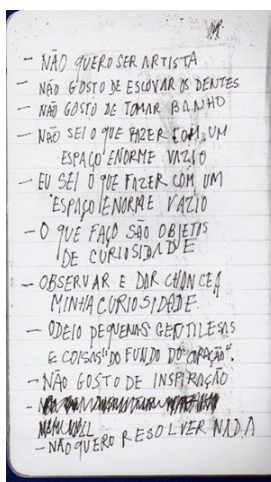 - NÃO QUERO SER ARTISTA
- NÃO GOSTO DE ESCOVAR OS DENTES
- NÃO GOSTO DE TOMAR BANHO
- NÃO SEI O QUE FAZER COM UM
ESPAÇO ENORME VAZIO
- EU SEI O QUE FAZER COM UM
ESPAÇO ENORME VAZIO
- O QUE FAÇO SÃO OBJETOS
DE CURIOSIDADE
- OBSERVAR E DAR CHANCE A
MINHA CURIOSIDADE.
- ODEIO PEQUENAS GENTILESAS
E COISAS "DO FUNDO DO CORAÇÃO".
- NÃO GOSTO DE INSPIRAÇÃO
- NÃO QUERO RESOLVER NADA